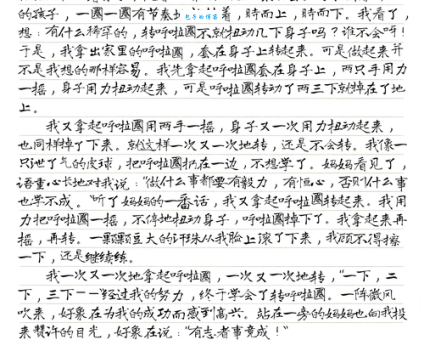 的孩子，一圈一圈有节奏 着，时而上，时而下。我看了，
想：有什么稀罕的，转呼啦圈不就扭动几下身子吗？谁不会呀！
于是，我拿出家里的呼啦圈，套在身上转起来。可是做起来并
不是我想的那样容易。我先拿起呼啦圈套在身上，两只手用力
一摇，身子用力扭动起来，可是呼啦圈转动了两三下就掉在了地
上。
我又拿起呼啦圈用两手一摇，身子又一次用力扭动起来，
也同样掉了下来。就这样一次又一次地转，还是不会转。我像一
只泄了气的皮球，把呼啦圈扔在一边，不想学了。妈妈看见了，
语重心长地对我说：“做什么事都要有毅力，有恒心，否则什么事
也学不成。”听了妈妈的一番话，我又拿起呼啦圈转起来。我用
力把呼啦圈一摇，不停地扭动身子，呼啦圈掉下了。我拿起来再
摇，再转。一颗颗豆大的汗珠从我脸上滚了下来，我顾不得擦
一下，还是继续练。
我一次又一次地拿起呼啦圈，一次又一次地转，“一下，二
下，三下——”经过我的努力，终于学会了转呼啦圈。一阵微风
吹来，好象在为我的成功而感到高兴。站在一旁的妈妈也向我投
来赞许的目光，好象在说：“有志者事竟成！”